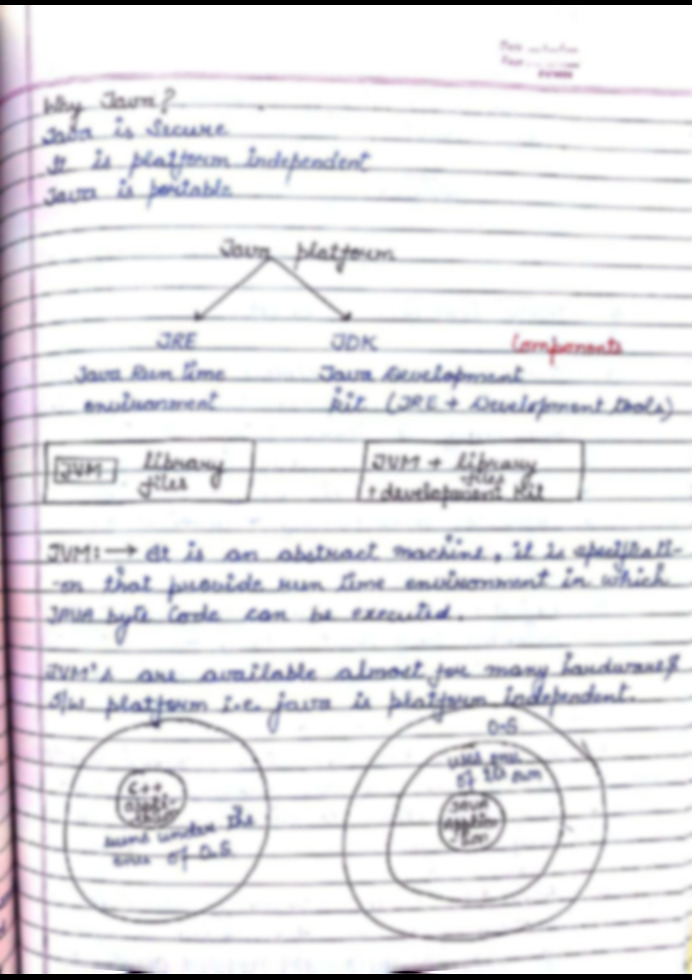 Why Java?
Java is Secure
It is platform independent
Java is portable
Java platform
JRE JDK Components
Java Run time Java Development
environment kit (JRE + Development tools)
JVM library files
JVM + library files
+ development kit
JVM: → It is an abstract machine, it is specificati-
-on that provide run time environment in which
JAVA byte Code can be executed.
JVM's are available almost for many hardware &
S/W platform i.e. java is platform independent.
C++ appli-cation
runs under the
env of O.S
O.S
uses env
of its own
JAVA
applica
tion